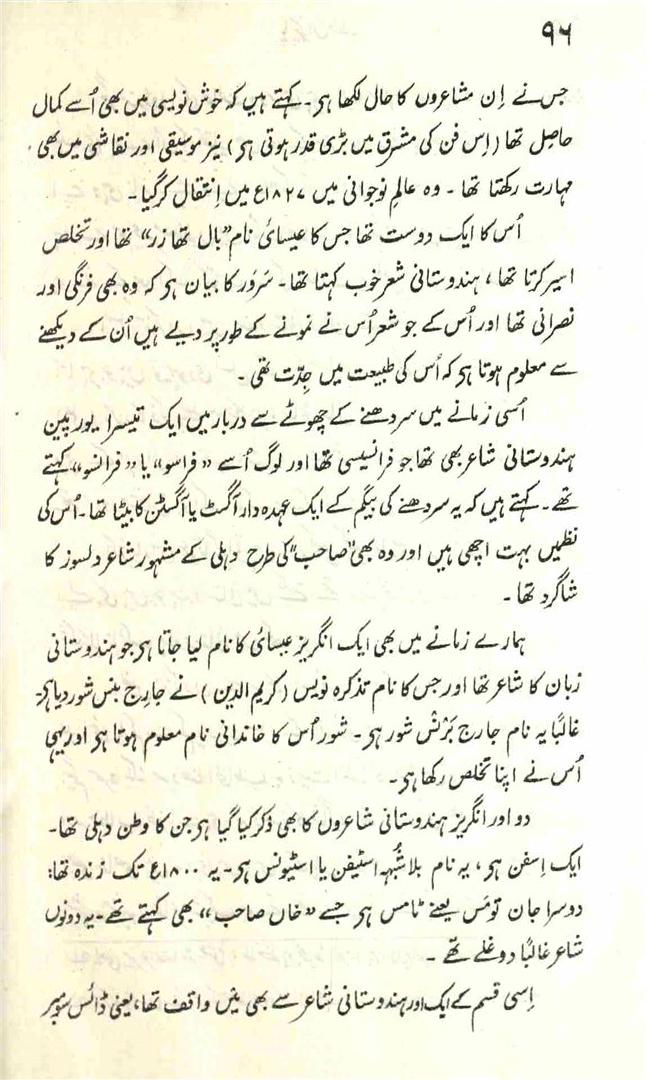 ۹۶
جس نے اِن مشاعروں کا حال لکھا ہی ۔ کہتے ہیں کہ خوش نویسی میں بھی اُسے کمال
حاصِل تھا (اِس فن کی مشرق میں بڑی قدر ہوتی ہی) نیز موسیقی اور نقاشی میں بھی
مہارت رکھتا تھا ۔ وہ عالمِ نوجوانی میں ۱۸۲۷ع میں اِنتقال کر گیا ۔
اُس کا ایک دوست تھا جس کا عیسائی نام ”بال تھا زر“ تھا اور تخلص
اسیر کرتا تھا ، ہندوستانی شعر خوب کہتا تھا ۔ سَروَر کا بیان ہی کہ وہ بھی فرنگی اور
نصرانی تھا اور اُس کے جو شعر اُس نے نمونے کے طور پر دیے ہیں اُن کے دیکھنے
سے معلوم ہوتا ہی کہ اُس کی طبیعت میں جِدّت تھی ۔
اُسی زمانے میں سردھنے کے چھوٹے سے دربار میں ایک تیسرا یورپین
ہندوستانی شاعر بھی تھا جو فرانسیسی تھا اور لوگ اُسے ”فراسو“ یا ”فرانسو“ کہتے
تھے ۔ کہتے ہیں کہ یہ سردھنے کی بیگم کے ایک عہدہ دار آگسٹ یا آگسٹن کا بیٹا تھا ۔ اُس کی
نظمیں بہت اچھی ہیں اور وہ بھی ”صاحب“ کی طرح دہلی کے مشہور شاعر دلسوز کا
شاگرد تھا ۔
ہمارے زمانے میں بھی ایک انگریز عیسائی کا نام لیا جاتا ہی جو ہندوستانی
زبان کا شاعر تھا اور جس کا نام تذکرہ نویس (کریم الدین) نے جارج بنس شور دیا ہی۔
غالبًا یہ نام جارج بَرنْس شور ہی ۔ شور اُس کا خاندانی نام معلوم ہوتا ہی اور یہی
اُس نے اپنا تخلص رکھا ہی ۔
دو اور انگریز ہندوستانی شاعروں کا بھی ذکر کیا گیا ہی جن کا وطن دہلی تھا ۔
ایک اِسفن ہی ، یہ نام بلا شُبہہ اسٹیفن یا اسٹیونس ہی ۔ یہ ۱۸۰۰ع تک زندہ تھا :
دوسرا جان تومَس یعنے ٹامس ہی جسے ”خاں صاحب“ بھی کہتے تھے ۔ یہ دونوں
شاعر غالبًا دوغلے تھے ۔
اِسی قسم کے ایک اور ہندوستانی شاعر سے بھی میَں واقف تھا ، یعنی ڈائس سومبر